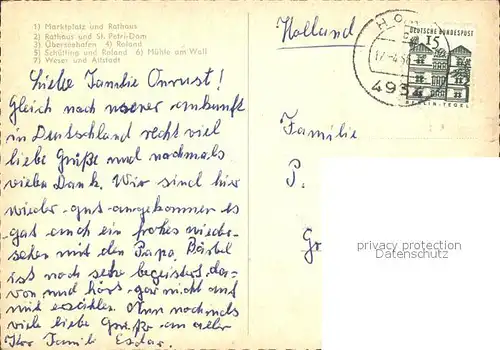 1) Marktplatz und Rathaus
2) Rathaus und St. Petri-Dom
3) Überseehafen 4) Roland
5) Schütting und Roland 6) Mühle am Wall
7) Weser und Altstadt
Liebe Familie Onrust!
Gleich nach unserer Ankunft
in Deutschland recht viel
liebe Grüße und nochmals
vielen Dank. Wir sind hier
wieder gut angekommen es
gab auch ein frohes wieder-
sehen mit den Papa. Bärbel
ist noch sehr begeistert da-
von und hört gar nicht auf
mit erzählen. Nun nochmals
viele liebe Grüße an aller
Ihr Familie
Holland
17.-4.
4934
DEUTSCHE BUNDESPOST
15
BERLIN-TEGEL
Familie
P.
Gr
privacy protection
villages.com